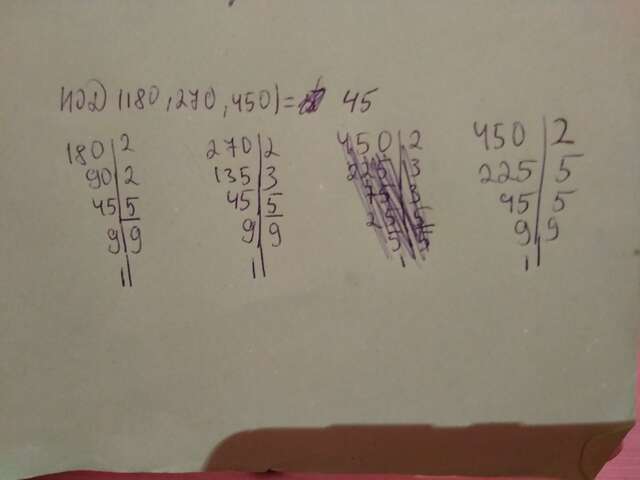 НОД (180, 270, 450) = 45
180 | 2
90 | 2
45 | 5
9 | 9
1
270 | 2
135 | 3
45 | 5
9 | 9
1
450 | 2
225 | 5
45 | 5
9 | 9
1